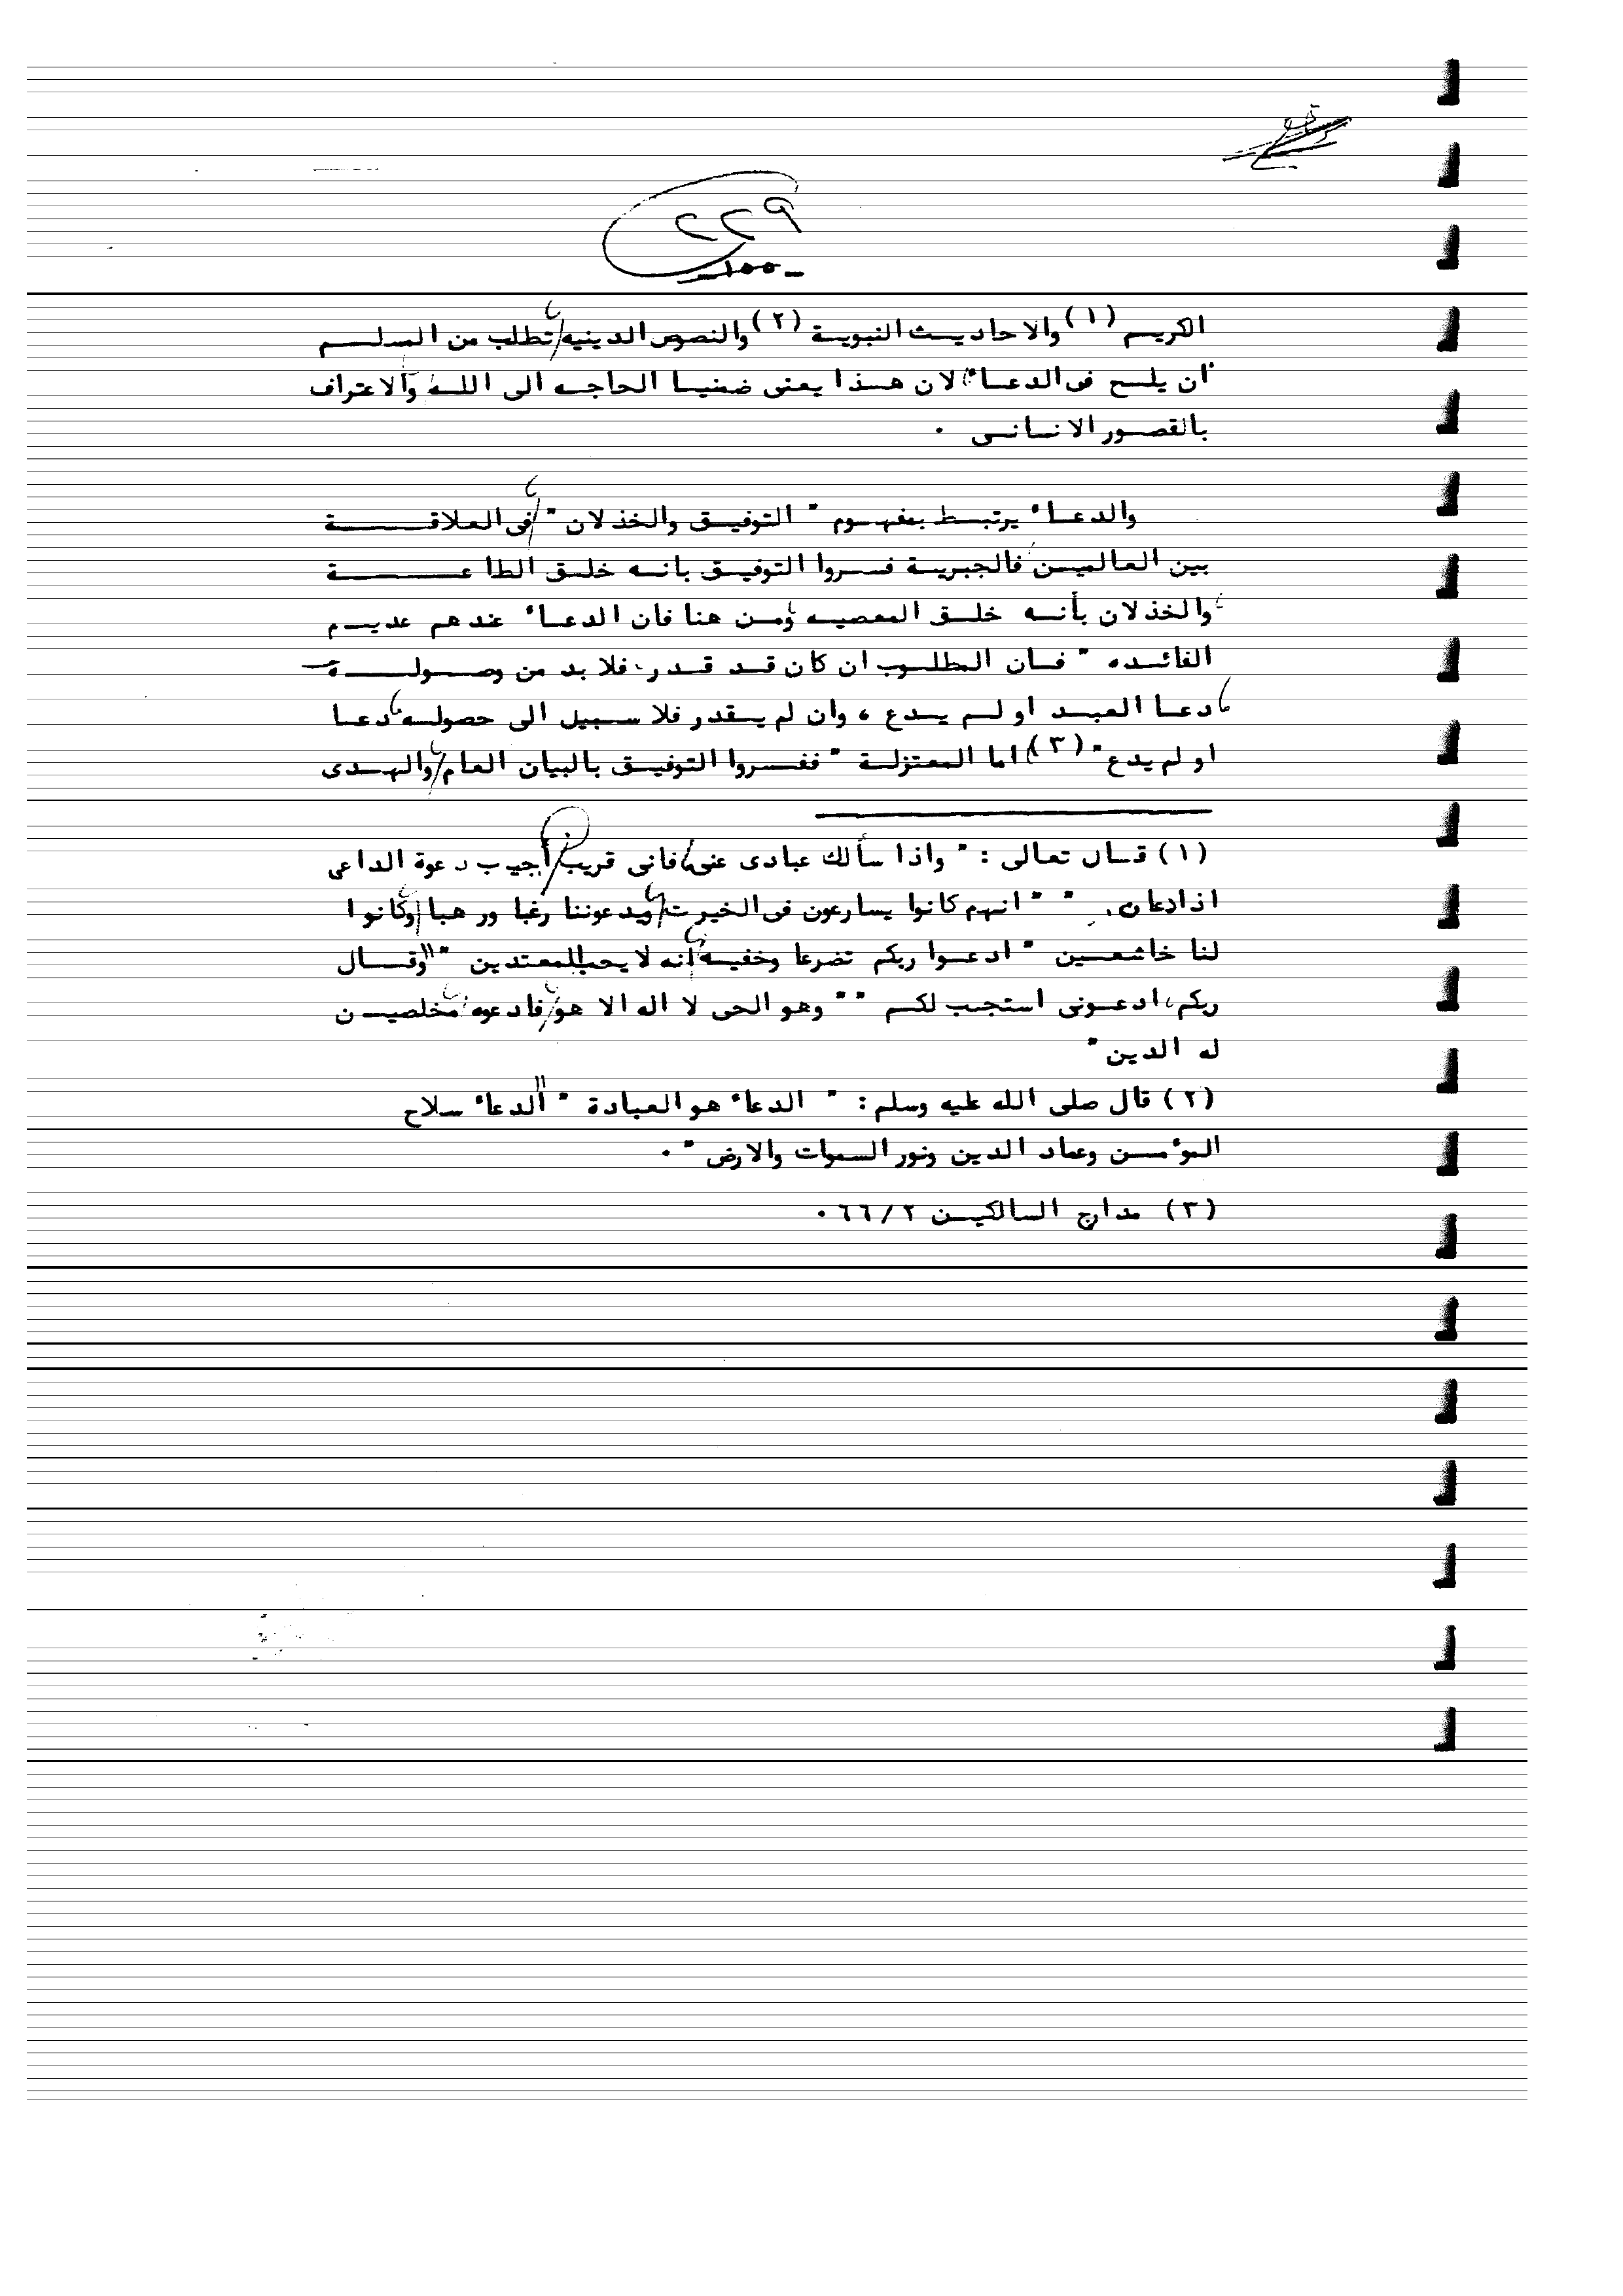 ٢٢٩
- ١٥٥ -
الكريم (١) والاحاديث النبوية (٢) والنصوص الدينيه، تطلب من المسلم
ان يلح فى الدعاء، لان هذا يعنى ضمنيا الحاجه الى الله، والاعتراف
بالقصور الانسانى .
والدعاء يرتبط بمفهوم " التوفيق والخذلان "، فى العلاقة
بين العالمين، فالجبرية فسروا التوفيق بانه خلق الطاعة
والخذلان بأنه خلق المعصيه، ومن هنا فان الدعاء عندهم عديم
الفائده " فان المطلوب ان كان قد قدر، فلا بد من وصوله
دعا العبد او لم يدع ، وان لم يقدر فلا سبيل الى حصوله، دعا
او لم يدع " (٣) اما المعتزلة " ففسروا التوفيق بالبيان العام، والهدى
(١) قال تعالى : " واذا سألك عبادى عنى، فانى قريب أجيب دعوة الداعى
اذا دعان. " " انهم كانوا يسارعون فى الخيرت، ويدعوننا رغبا ورهبا، وكانوا
لنا خاشعين " ادعوا ربكم تضرعا وخفيه، انه لا يحب المعتدين " "وقال
ربكم، ادعونى استجب لكم " " وهو الحى لا اله الا هو، فادعوه، مخلصين
له الدين "
(٢) قال صلى الله عليه وسلم : " الدعاء هو العبادة " "الدعاء سلاح
المؤمن وعماد الدين ونور السموات والارض " .
(٣) مدارج السالكين ٢/ ٦٦ .